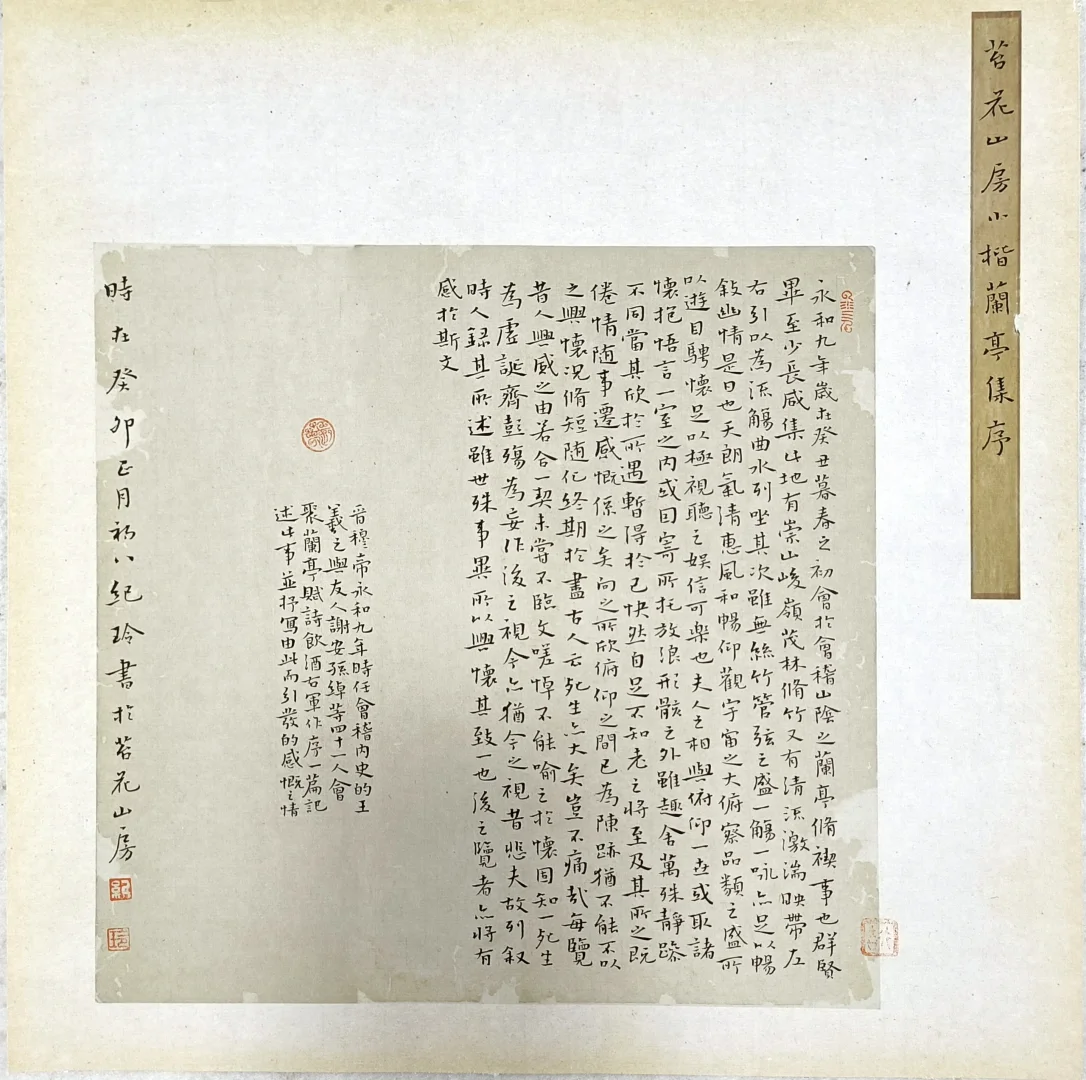 苔花山房小楷蘭亭集序
永和九年歲在癸丑暮春之初會於會稽山陰之蘭亭脩禊事也群賢
畢至少長咸集此地有崇山峻嶺茂林脩竹又有清流激湍映帶左
右引以為流觴曲水列坐其次雖無絲竹管弦之盛一觴一咏亦足以暢
敍幽情是日也天朗氣清惠風和暢仰觀宇宙之大俯察品類之盛所
以遊目騁懷足以極視聽之娛信可樂也夫人之相與俯仰一世或取諸
懷抱悟言一室之內或因寄所托放浪形骸之外雖趣舍萬殊靜躁
不同當其欣於所遇暫得於己快然自足不知老之將至及其所之既
倦情随事遷感慨係之矣向之所欣俯仰之間已為陳跡猶不能不以
之興懷況脩短随化終期於盡古人云死生亦大矣豈不痛哉每覽
昔人興感之由若合一契未嘗不臨文嗟悼不能喻之於懷固知一死生
為虛誕齊彭殤為妄作後之視今亦猶今之視昔悲夫故列叙
時人録其所述雖世殊事異所以興懷其致一也後之覽者亦將有
感於斯文
晉穆帝永和九年時任會稽內史的王
羲之與友人謝安孫綽等四十一人會
聚蘭亭賦詩飲酒右軍作序一篇記
述此事並抒寫由此而引發的感慨之情
時在癸卯正月初八紀玲書於苔花山房
紀
玲